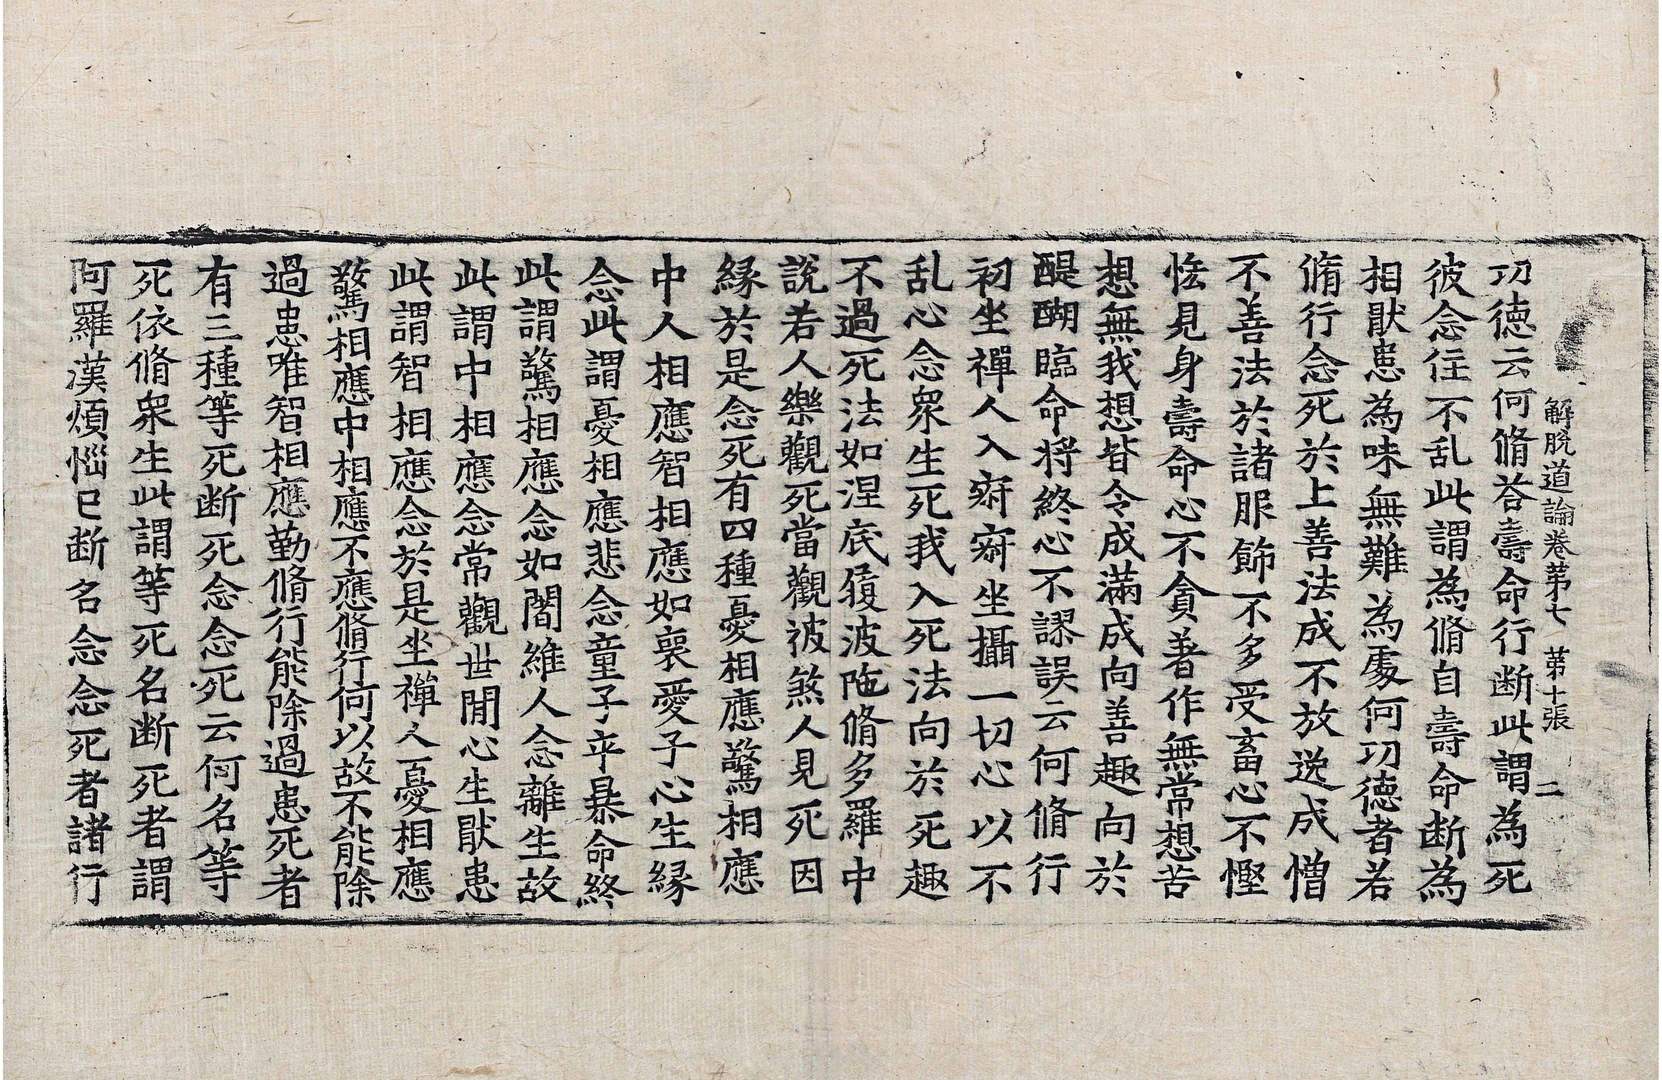 解脫道論卷第七　第十張　二
功德云何脩荅壽命行断此謂為死
彼念住不乱此謂為脩自壽命断為
相猒患為味無難為處何功德者若
脩行念死於上善法成不放逸成憎
不善法於諸服飾不多受畜心不慳
悋見身壽命心不貪著作無常想苦
想無我想皆令成滿成向善趣向於
醍醐臨命将終心不謬誤云何脩行
初坐禪人入寂寂坐攝一切心以不
乱心念眾生死我入死法向於死趣
不過死法如涅底履波陁脩多羅中
說若人樂觀死當觀被煞人見死因
緣於是念死有四種憂相應驚相應
中人相應智相應如喪愛子心生緣
念此謂憂相應悲念童子卒暴命終
此謂驚相應念如闍維人念離生故
此謂中相應念常觀世間心生猒患
此謂智相應念於是坐禪人憂相應
驚相應中相應不應脩行何以故不能除
過患唯智相應勤脩行能除過患死者
有三種等死断死念念死云何名等
死依脩眾生此謂等死名断死者謂
阿羅漢煩惱已断名念念死者諸行